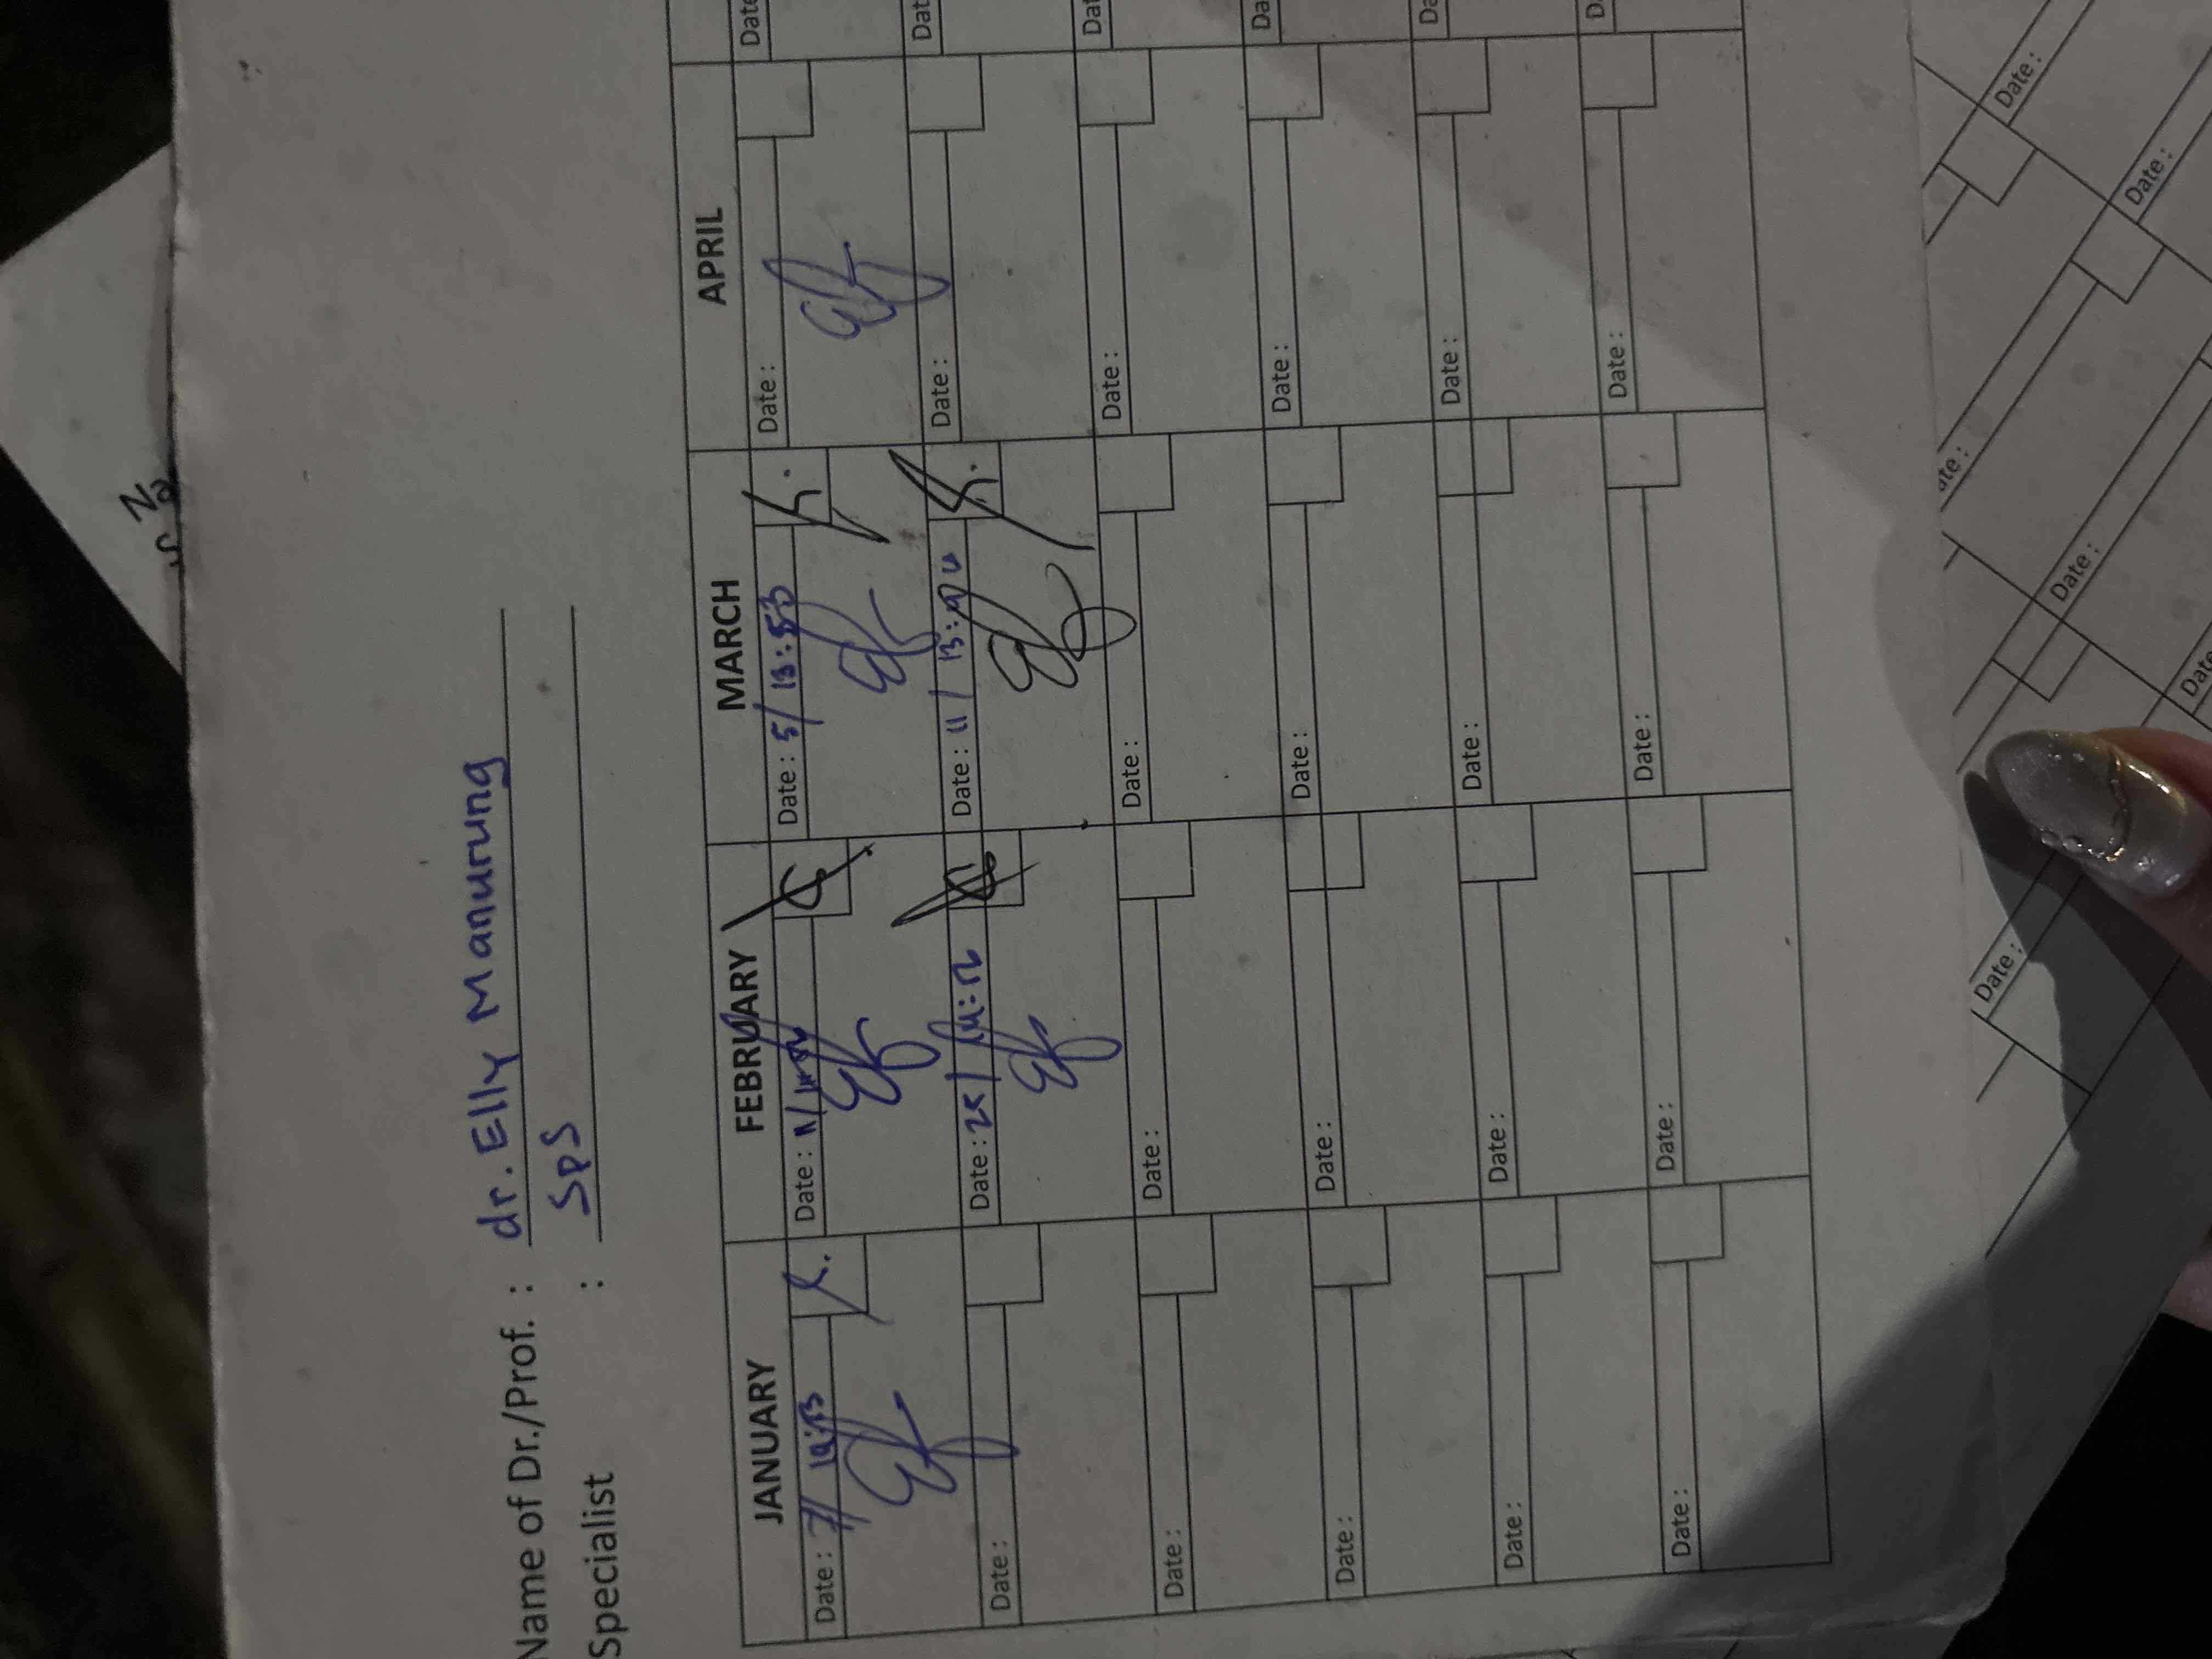 Name of Dr./Prof. : dr. Elly Manurung
Specialist : SpS
JANUARY FEBRUARY MARCH APRIL
Date : 7/ Date : Date : 5/ 13:53 Date : Date
Date : Date : 25/ Date : 11/ Date : Date
Date : Date : Date : Date : Dat
Date : Date : Date : Date : Da
Date : Date : Date : Date : Da
Date : Date : Date : Date : D
Date :
Date :
ate :
Date :
Date :
Date